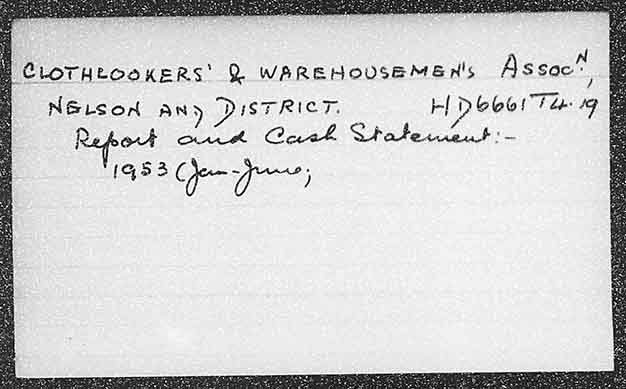 CLOTHLOOKERS' & WAREHOUSEMEN'S ASSOCN,
NELSON AND DISTRICT. HD6661 T4.19
Report and Cash Statement:-
1953 (Jan-June;